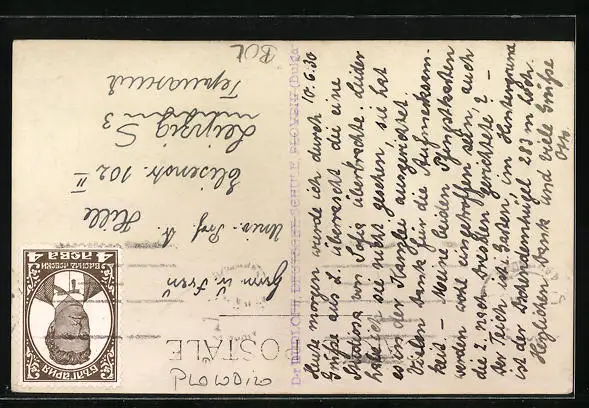 Heute morgen wurde ich durch 10.6.30
Grüße aus L überrascht die eine
Studentin von Sofia überbrachte. Leider
habe ich sie nicht gesehen, sie hat
es in der Kanzlei ausgerichtet
Vielen Dank für die Aufmerksam-
keit — Meine beiden Pfingstkarten
werden wohl eingetroffen sein, auch
die 2. nach Dresden gerichtete? —
Der Teich ist Garten im Hintergrund
ist der Bunardschikhügel 283 m hoch.
Herzlichen Dank und viele Grüße
Otto.
Dr. RUDLOFF, DEUTSCHE SCHULE, PLOVDIV (Bulga
POSTALE
PLOVDIV
BUL
Herrn u. Frau
Univ. Prof. A
Hille
Leipzig S 3
Elisenstr. 102 II
Германия
БЪЛГАРИЯ
ВАСИЛ ЛЕВСКИ
4 ЛЕВА 4